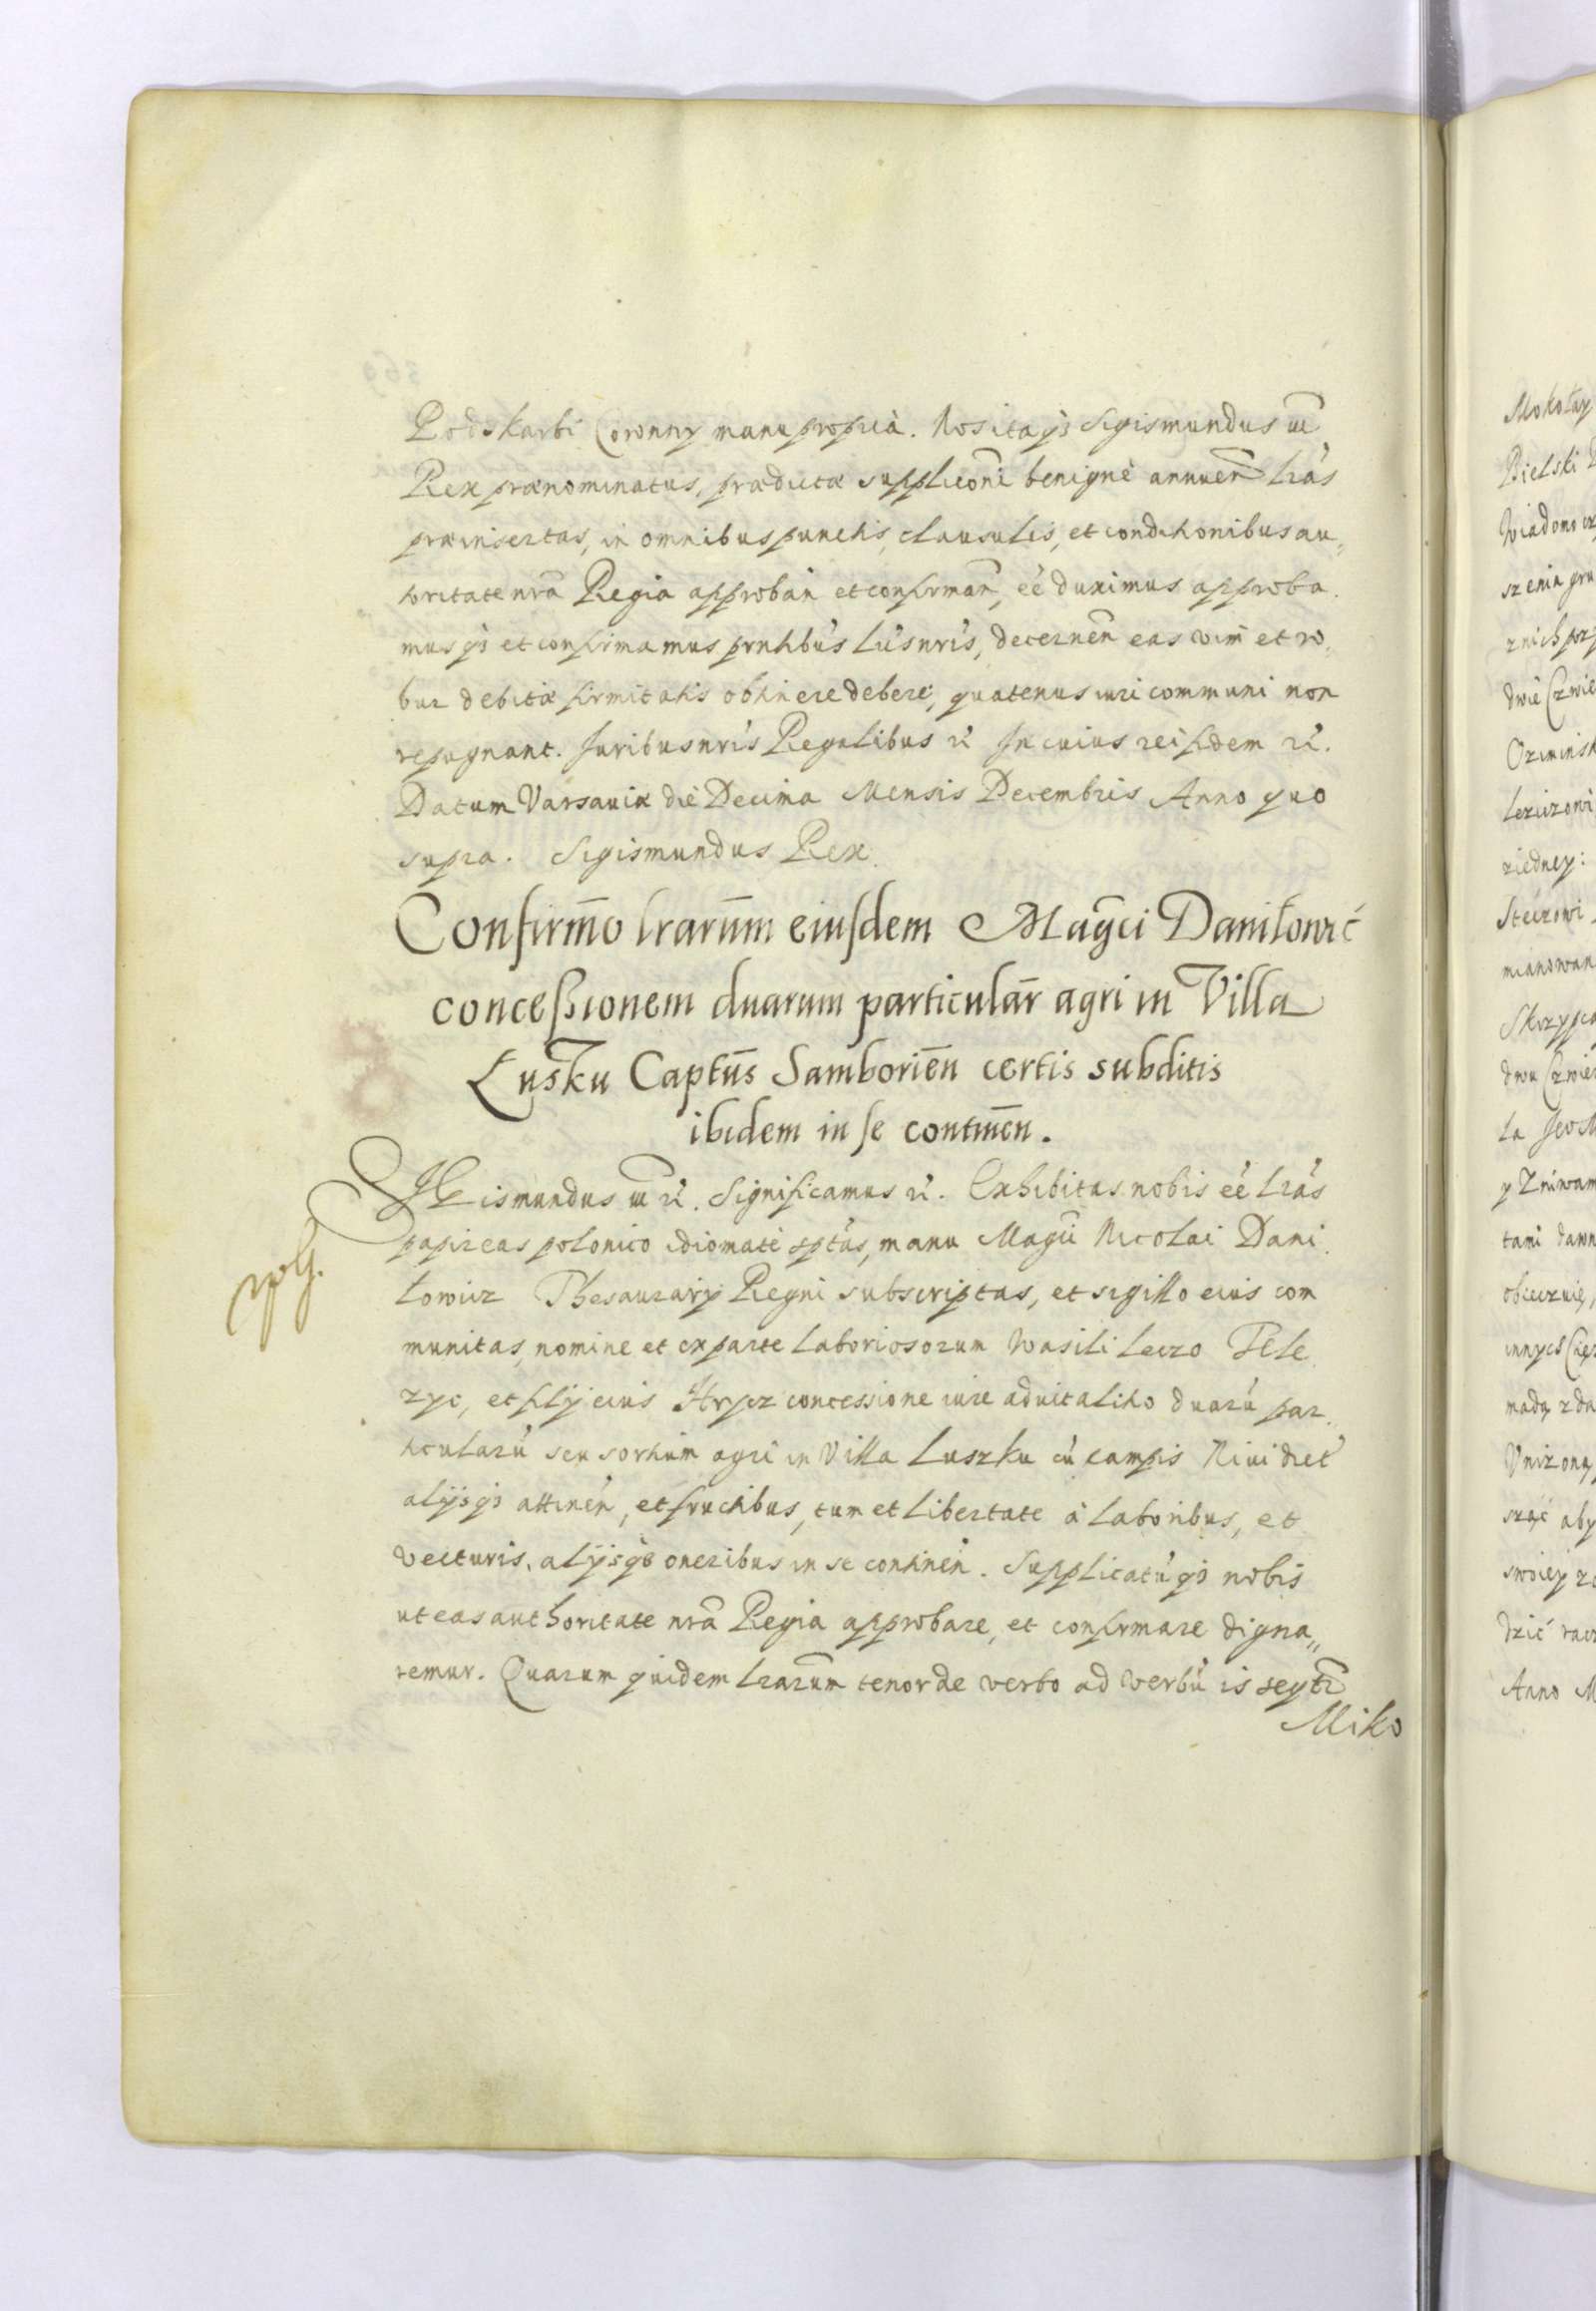 Podskarbi Coronny manu propria. Nos itaqȝ Sigismundus III
Rex prænominatus, prædictæ supplicõni benignè annueñ lrãs
præinsertas, in omnibus punctis, clausulis, et conditionibus au„
toritate nrã Regia approbañ et confirmañ, eẽ duximus approba
musqȝ et confirmamus pñtibus lris nris, decerneñ eas vim et ro„
bur debitæ firmitatis obtinere debere, quatenus iuri communi non
repugnant. Juribus nris Regalibus rc̃ In cuius rei fidem rc̃.
Datum Varsauiæ die Decima Mensis Decembris Anno quo
supra. Sigismundus Rex
Confirm̃o lrarũm eiusdem Magc̃i Daniłowic̃
concessionem duarum particulãr agri in Villa
Łusku Captũs Samboriẽn certis subditis
ibidem in se contineñ.
SIGismundus III rc̃. Significamus rc̃. Exhibitas nobis eẽ lrãs
papireas polonico idiomate sptãs, manu Magci Nicolai Dani
łowicz Thesaurarij Regni subscriptas, et sigillo eius com
munitas, nomine et ex parte laboriosorum Wasili Leczo Tele
zyc, et filij eius Hrycz concessione iure aduitalitio duarũ par
ticularũ seu sortium agri in Villa Luszku cũ campis Niui dict
alijsqȝ attineñ, et fructibus, tum et libertate à laboribus, et
vecturis, alijsqȝ oneribus in se contineñ. Supplicatũqȝ nobis
ut eas authoritate nrã Regia approbare, et confirmare digna„
remur. Quarum quidem lrarum tenor de verbo ad verbũ is seqt̃r
Miko
Mokołay
Bielski
szenia gru
dwie
ziedney:
mianowan
y Zniwam
tami dawn
Anno M